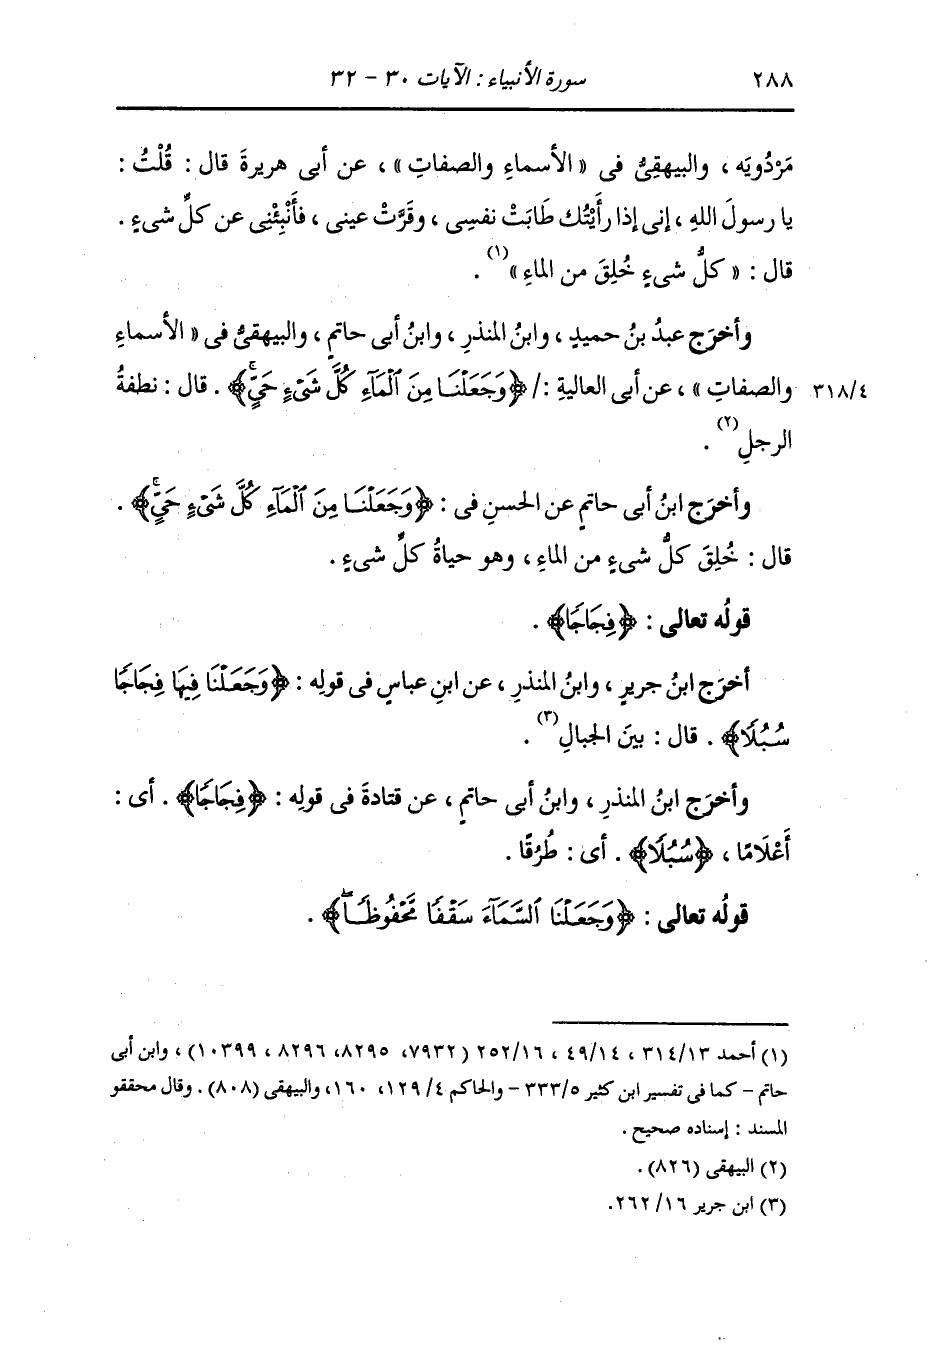 ٢٨٨ سورة الأنبياء : الآيات ٣٠ - ٣٢
مَرْدُويَه ، والبيهقىُّ فى « الأسماءِ والصفاتِ » ، عن أبى هريرةَ قال : قُلْتُ :
يا رسولَ اللهِ ، إنى إذا رأَيْتُك طَابَتْ نفسِى ، وقَرَّتْ عينى ، فأَنْبِئْنِى عن كلِّ شىءٍ .
قال : « كلُّ شىءٍ خُلِقَ من الماءِ »(١) .
وأخرَج عبدُ بنُ حميدٍ ، وابنُ المنذرِ ، وابنُ أبى حاتمٍ ، والبيهقىُّ فى « الأسماءِ
٣١٨/٤ والصفاتِ » ، عن أبى العاليةِ :/ ﴿وَجَعَلْنَا مِنَ ٱلْمَآءِ كُلَّ شَىْءٍ حَيٍّۚ﴾ . قال : نطفةُ
الرجلِ(٢) .
وأخرَج ابنُ أبى حاتمٍ عن الحسنِ فى : ﴿وَجَعَلْنَا مِنَ ٱلْمَآءِ كُلَّ شَىْءٍ حَيٍّۚ﴾ .
قال : خُلِقَ كلُّ شىءٍ من الماءِ ، وهو حياةُ كلِّ شىءٍ .
قولُه تعالى : ﴿فِجَاجًا﴾ .
أخرَج ابنُ جريرٍ ، وابنُ المنذرِ ، عن ابنِ عباسٍ فى قولِه : ﴿وَجَعَلْنَا فِيهَا فِجَاجًا
سُبُلًا﴾ . قال : بينَ الجبالِ(٣) .
وأخرَج ابنُ المنذرِ ، وابنُ أبى حاتمٍ ، عن قتادةَ فى قولِه : ﴿فِجَاجًا﴾ . أى :
أَعْلَامًا ، ﴿سُبُلًا﴾ . أى : طُرُقًا .
قولُه تعالى : ﴿وَجَعَلْنَا ٱلسَّمَآءَ سَقْفًا مَّحْفُوظًاۖ﴾ .
(١) أحمد ٣١٤/١٣ ، ٤٩/١٤ ، ٢٥٢/١٦ (٧٩٣٢، ٨٢٩٥، ٨٢٩٦ ، ١٠٣٩٩) ، وابن أبى
حاتم - كما فى تفسير ابن كثير ٣٣٣/٥ - والحاكم ٤/ ١٢٩، ١٦٠، والبيهقى (٨٠٨) . وقال محققو
المسند : إسناده صحيح .
(٢) البيهقى (٨٢٦) .
(٣) ابن جرير ١٦/ ٢٦٢.